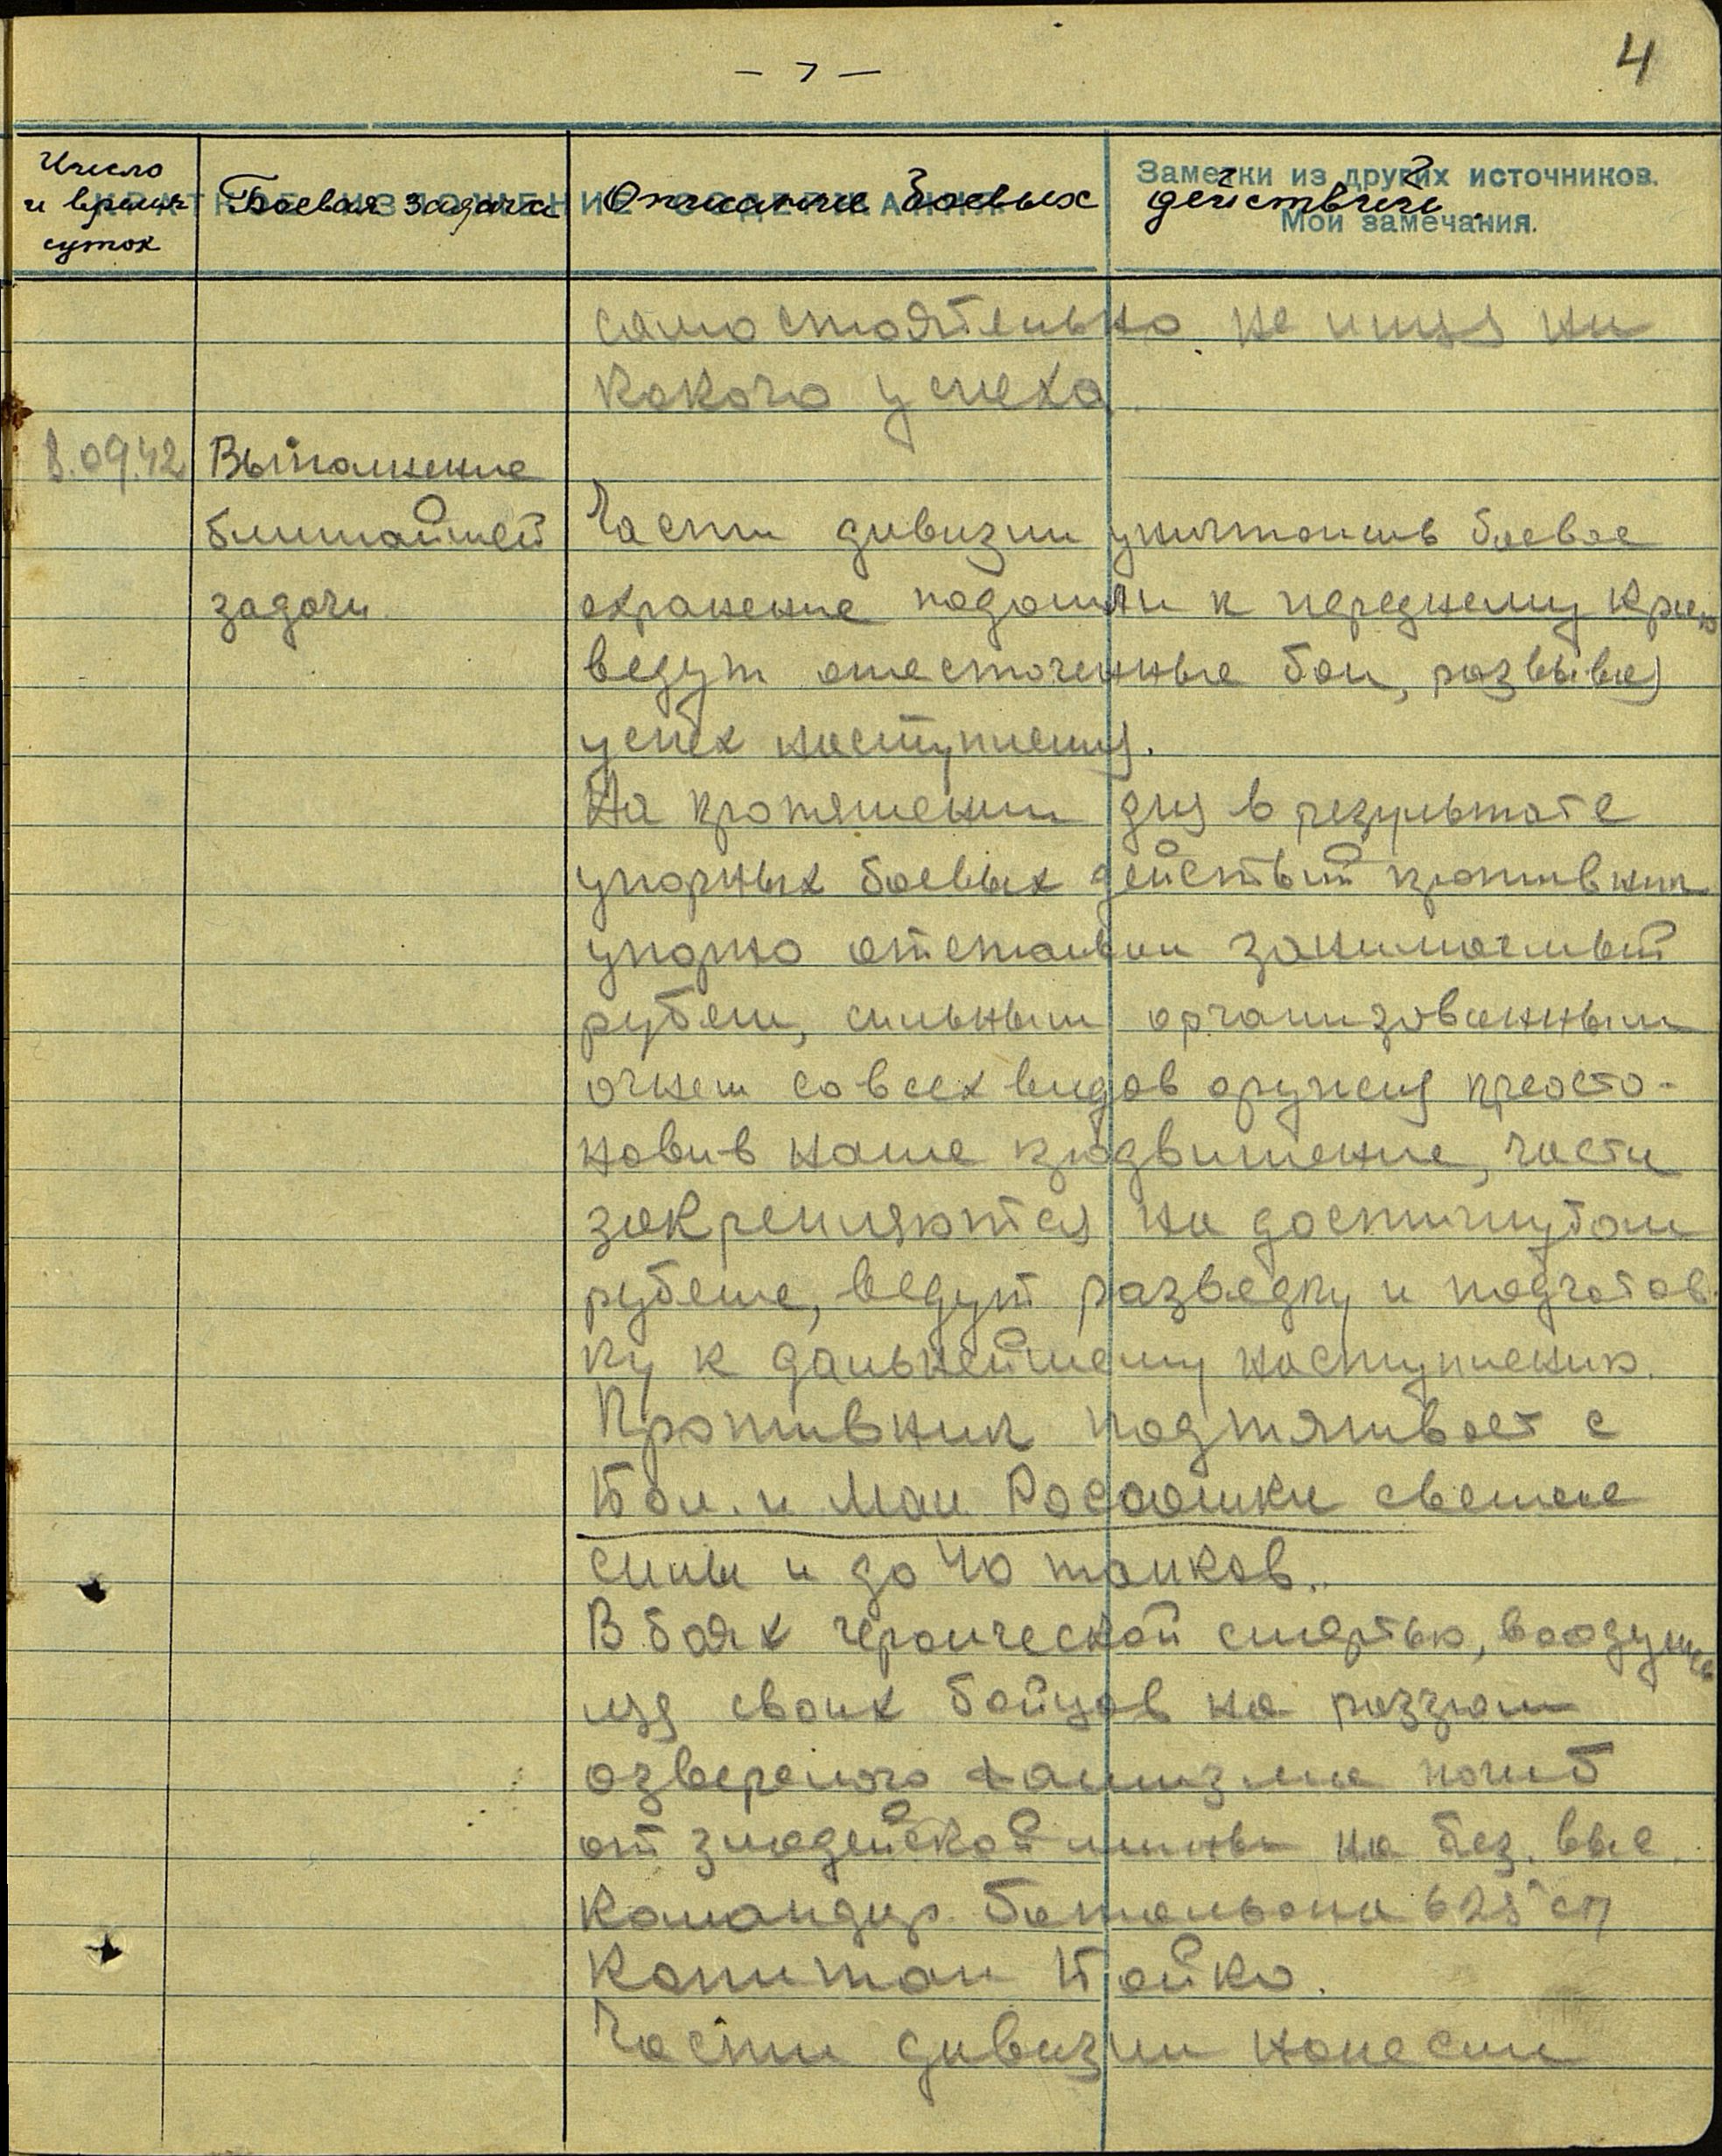 – 7 –
4
Число
и время
суток
Боевая задача
Описание боевых действий
Заметки из других источников.
Мои замечания.
самостоятельно не имея ни
какого успеха.
8.09.42
Выполнение
ближайшей
задачи.
Части дивизии уничтожив боевое
охранение подошли к переднему краю
ведут ожесточенные бои, развивая
успех наступления.
На протяжении дня в результате
упорных боевых действий противник
упорно отстаивал занимаемый
рубеж, сильным организованным
огнем со всех видов оружия преоста-
новив наше продвижение, части
закрепляются на достигнутом
рубеже, ведут разведку и подготов-
ку к дальнейшему наступлению.
Противник подтягивает с
Бол. и Мал. Россошки свежие
силы и до 40 танков.
В боях героической смертью, воодушев
ляя своих бойцов на разгром
озверелого фашизма погиб
от злодейской мины на без. выс.
командир батальона 625 сп
капитан Бойко.
Части дивизии нанесли